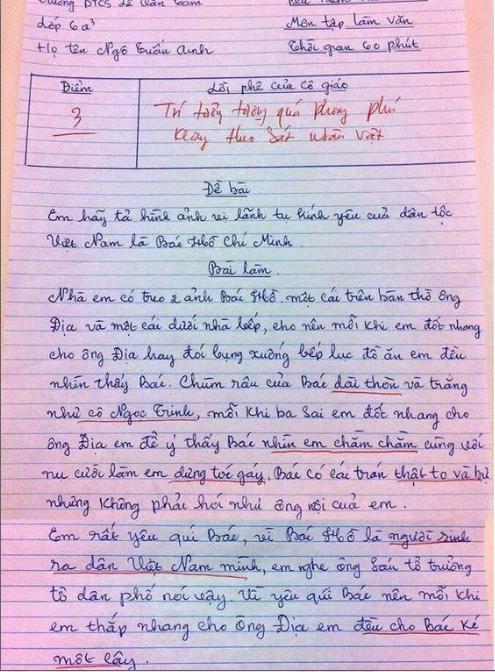 Trường PTCS Lê Văn Tám
Lớp 6a³ Môn tập làm văn
Họ tên Ngô Tuấn Anh Thời gian 60 phút
Điểm Lời phê của cô giáo
3 Trí tưởng tượng quá phong phú
Không theo sát nhân vật
Đề bài
Em hãy tả hình ảnh vị lãnh tụ kính yêu của dân tộc
Việt Nam là Bác Hồ Chí Minh.
Bài làm.
Nhà em có treo 2 ảnh Bác Hồ. một cái trên bàn thờ ông
Địa và một cái dưới nhà bếp, cho nên mỗi khi em đốt nhang
cho ông Địa hay đói bụng xuống bếp lục đồ ăn em đều
nhìn thấy Bác. Chùm râu của Bác dài thòn và trắng
như cô Ngọc Trinh, mỗi khi ba sai em đốt nhang cho
ông Địa em để ý thấy Bác nhìn em chằm chằm cùng với
nụ cười làm em dựng toé gáy. Bác có cái trán thật to và bự
nhưng không phải hói như ông nội của em.
Em rất yêu quí Bác, vì Bác Hồ là người sinh
ra dân Việt Nam mình, em nghe ông Sáu tổ trưởng
tổ dân phố nói vậy. Vì yêu quí Bác nên mỗi khi
em thắp nhang cho ông Địa em đều cho Bác ké
một cây.